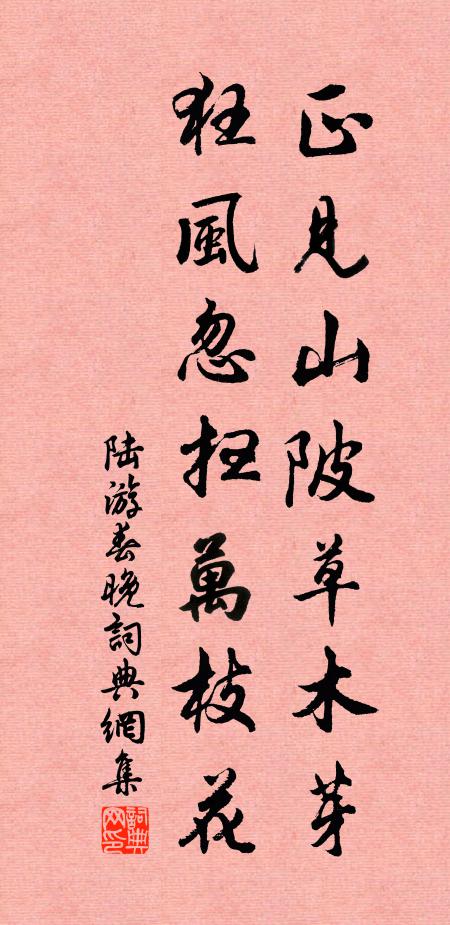 正見山陂草木芽
狂風忽扫萬枝花
陆游春晚詞典網集
詞典网印